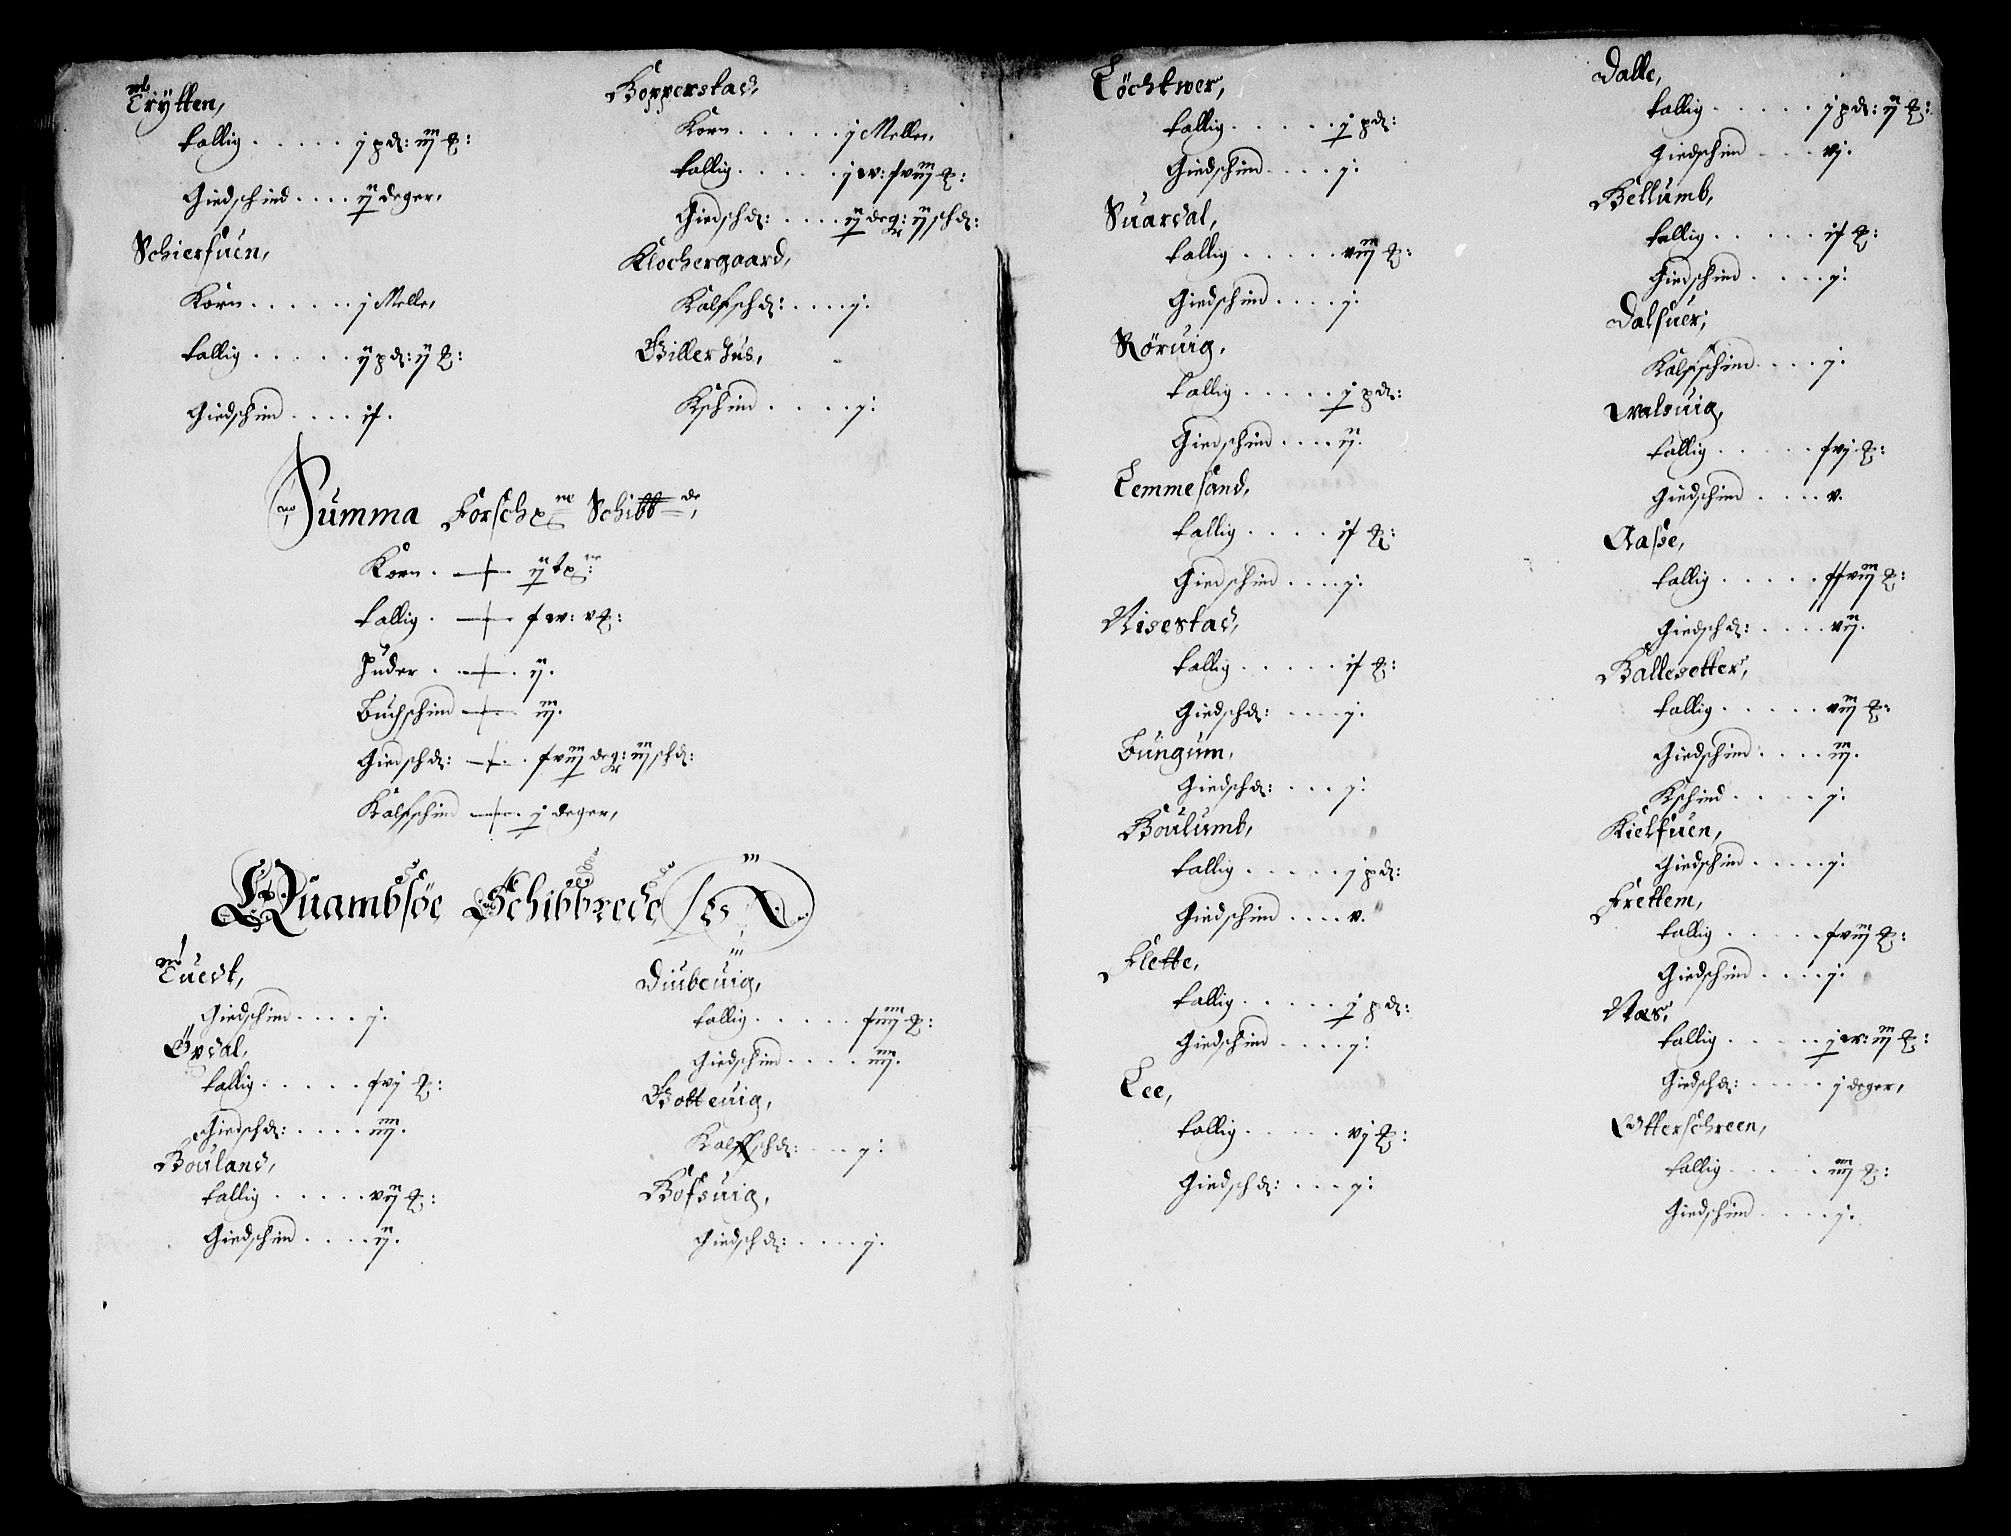 Trÿtten,
tallig . . . . . j pd: iij ℔:
Giedschind . . . . ij deger,
Schierfuen,
Korn . . . . . . j Melle,
tallig . . . . . ij pd: ij ℔:
Giedschind . . . . iſ.
Kopperstad,
Korn . . . . . j Melle,
tallig . . . . . j w: ſviij ℔:
Giedschd: . . . . ij deg: ij schd:
Klochergaard,
Kalfschd: . . . . j:
Biller Jus,
Kschind . . . . j:
Summa Forschr Schibbde,
Korn . ij tr:
tallig . ſ w: v ℔:
Huder . . ij.
Buchschind iij.
Giedschd: . ſviij deg: iij schd:
Kalfschind . j deger,
Quambsøe Schibbrede
Tuedt,
Giedschind . . . . j:
Ørdal,
tallig . . . . . ſvj ℔:
Giedschd: . . . . iiij.
Bouland,
tallig . . . . . vij ℔:
Giedschind . . . . ij.
Diubeuig,
tallig . . . . . ſiiij ℔:
Giedschind . . . . iiij.
Botteuig,
Kalfschd: . . . j:
Bofsuig,
Giedschd: . . . . j:
Løchtwer,
tallig . . . . . j pd:
Giedschind . . . . j:
Suardal,
tallig . . . . . viij ℔:
Giedschind . . . . j:
Røruig,
tallig . . . . . j pd:
Giedschind . . . . ij.
Lemmesand,
tallig . . . . iſ ℔:
Giedschind . . . . j:
Nisestad,
tallig . . . . . iſ ℔:
Giedschd: . . . . j:
Bungum,
Giedschd: . . . j:
Boulumb,
tallig . . . . . j pd:
Giedschind . . . . v.
Flette,
tallig . . . . . j pd:
Giedschind . . . . j:
Lee,
tallig . . . . . vj ℔:
Giedschd: . . . j:
Dalle,
tallig . . . . . j pd: ij ℔:
Giedschind . . . vj.
Bellumb,
tallig . . . . . iſ ℔:
Giedschind . . . . j:
Dalfuer,
Kalfschind . . . . j:
Walsuig,
tallig . . . . . ſvj ℔:
Giedschind . . . . v.
Aasse,
tallig . . . . . ſſviij ℔:
Giedschd: . . . . vij.
Ballesetter,
tallig . . . . . viij ℔:
Giedschind . . . . iij.
Kschind . . . . . j:
Kielfuen,
Giedschind . . . . . j:
Frettem,
tallig . . . . . ſviij ℔:
Giedschind . . . . j:
Næs,
tallig . . . . . j w: iij ℔:
Giedschd: . . . . . j deger,
Otterschreen,
tallig . . . . . iiij ℔:
Giedschind . . . . j: